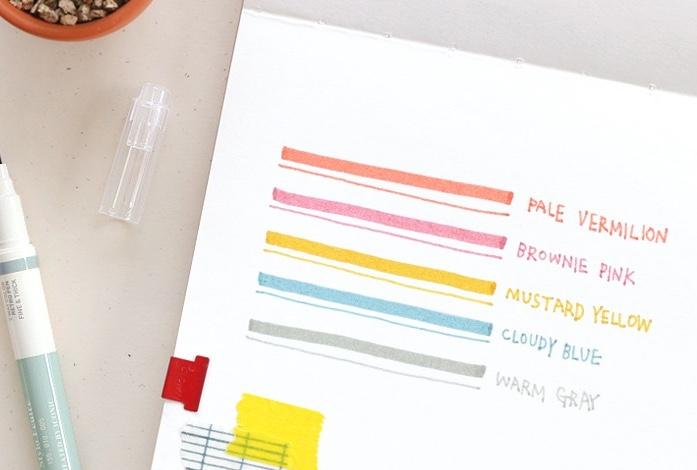 PALE VERMILION
BROWNIE PINK
MUSTARD YELLOW
CLOUDY BLUE
WARM GRAY
FINE & THICK